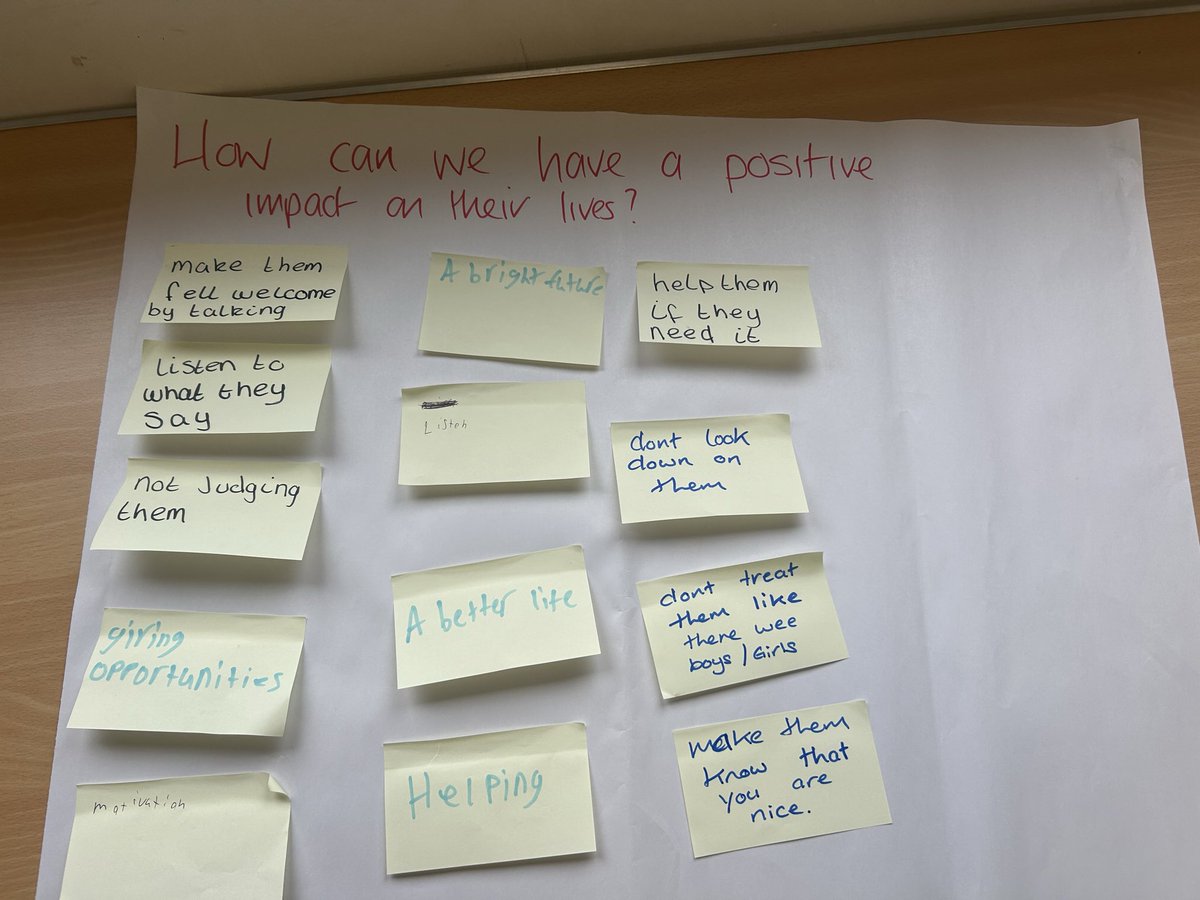 How can we have a positive
impact on their lives?
make them
fell welcome
by talking
Listen to
what they
say
not Judging
them
giving
opportunities
motivation
A bright future
Listen
A better life
Helping
help them
if they
need it
dont look
down on
them
dont treat
them like
there wee
boys/Girls
make them
know that
you are
nice.